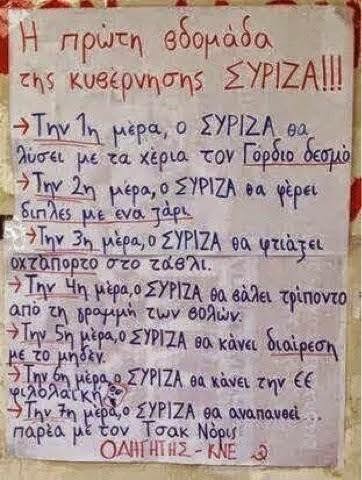 Η πρώτη εβδομάδα
της κυβέρνησης ΣΥΡΙΖΑ!!!
→Την 1η μέρα, ο ΣΥΡΙΖΑ θα
λύσει με τα χέρια τον Γόρδιο δεσμό
→Την 2η μέρα, ο ΣΥΡΙΖΑ θα φέρει
διπλές με ενα ζάρι
→Την 3η μέρα, ο ΣΥΡΙΖΑ θα φτιάξει
οχτάπορτο στο τάβλι.
→Την 4η μέρα, ο ΣΥΡΙΖΑ θα βάλει τρίποντο
από τη γραμμή των βολών.
→Την 5η μέρα, ο ΣΥΡΙΖΑ θα κάνει διαίρεση
με το μηδέν.
→Την 6η μέρα, ο ΣΥΡΙΖΑ θα κάνει την ΕΕ
φιλολαϊκή
→Την 7η μέρα, ο ΣΥΡΙΖΑ θα αναπαυθεί...
παρέα με τον Τσακ Νόρις
ΟΔΗΓΗΤΗΣ - ΚΝΕ